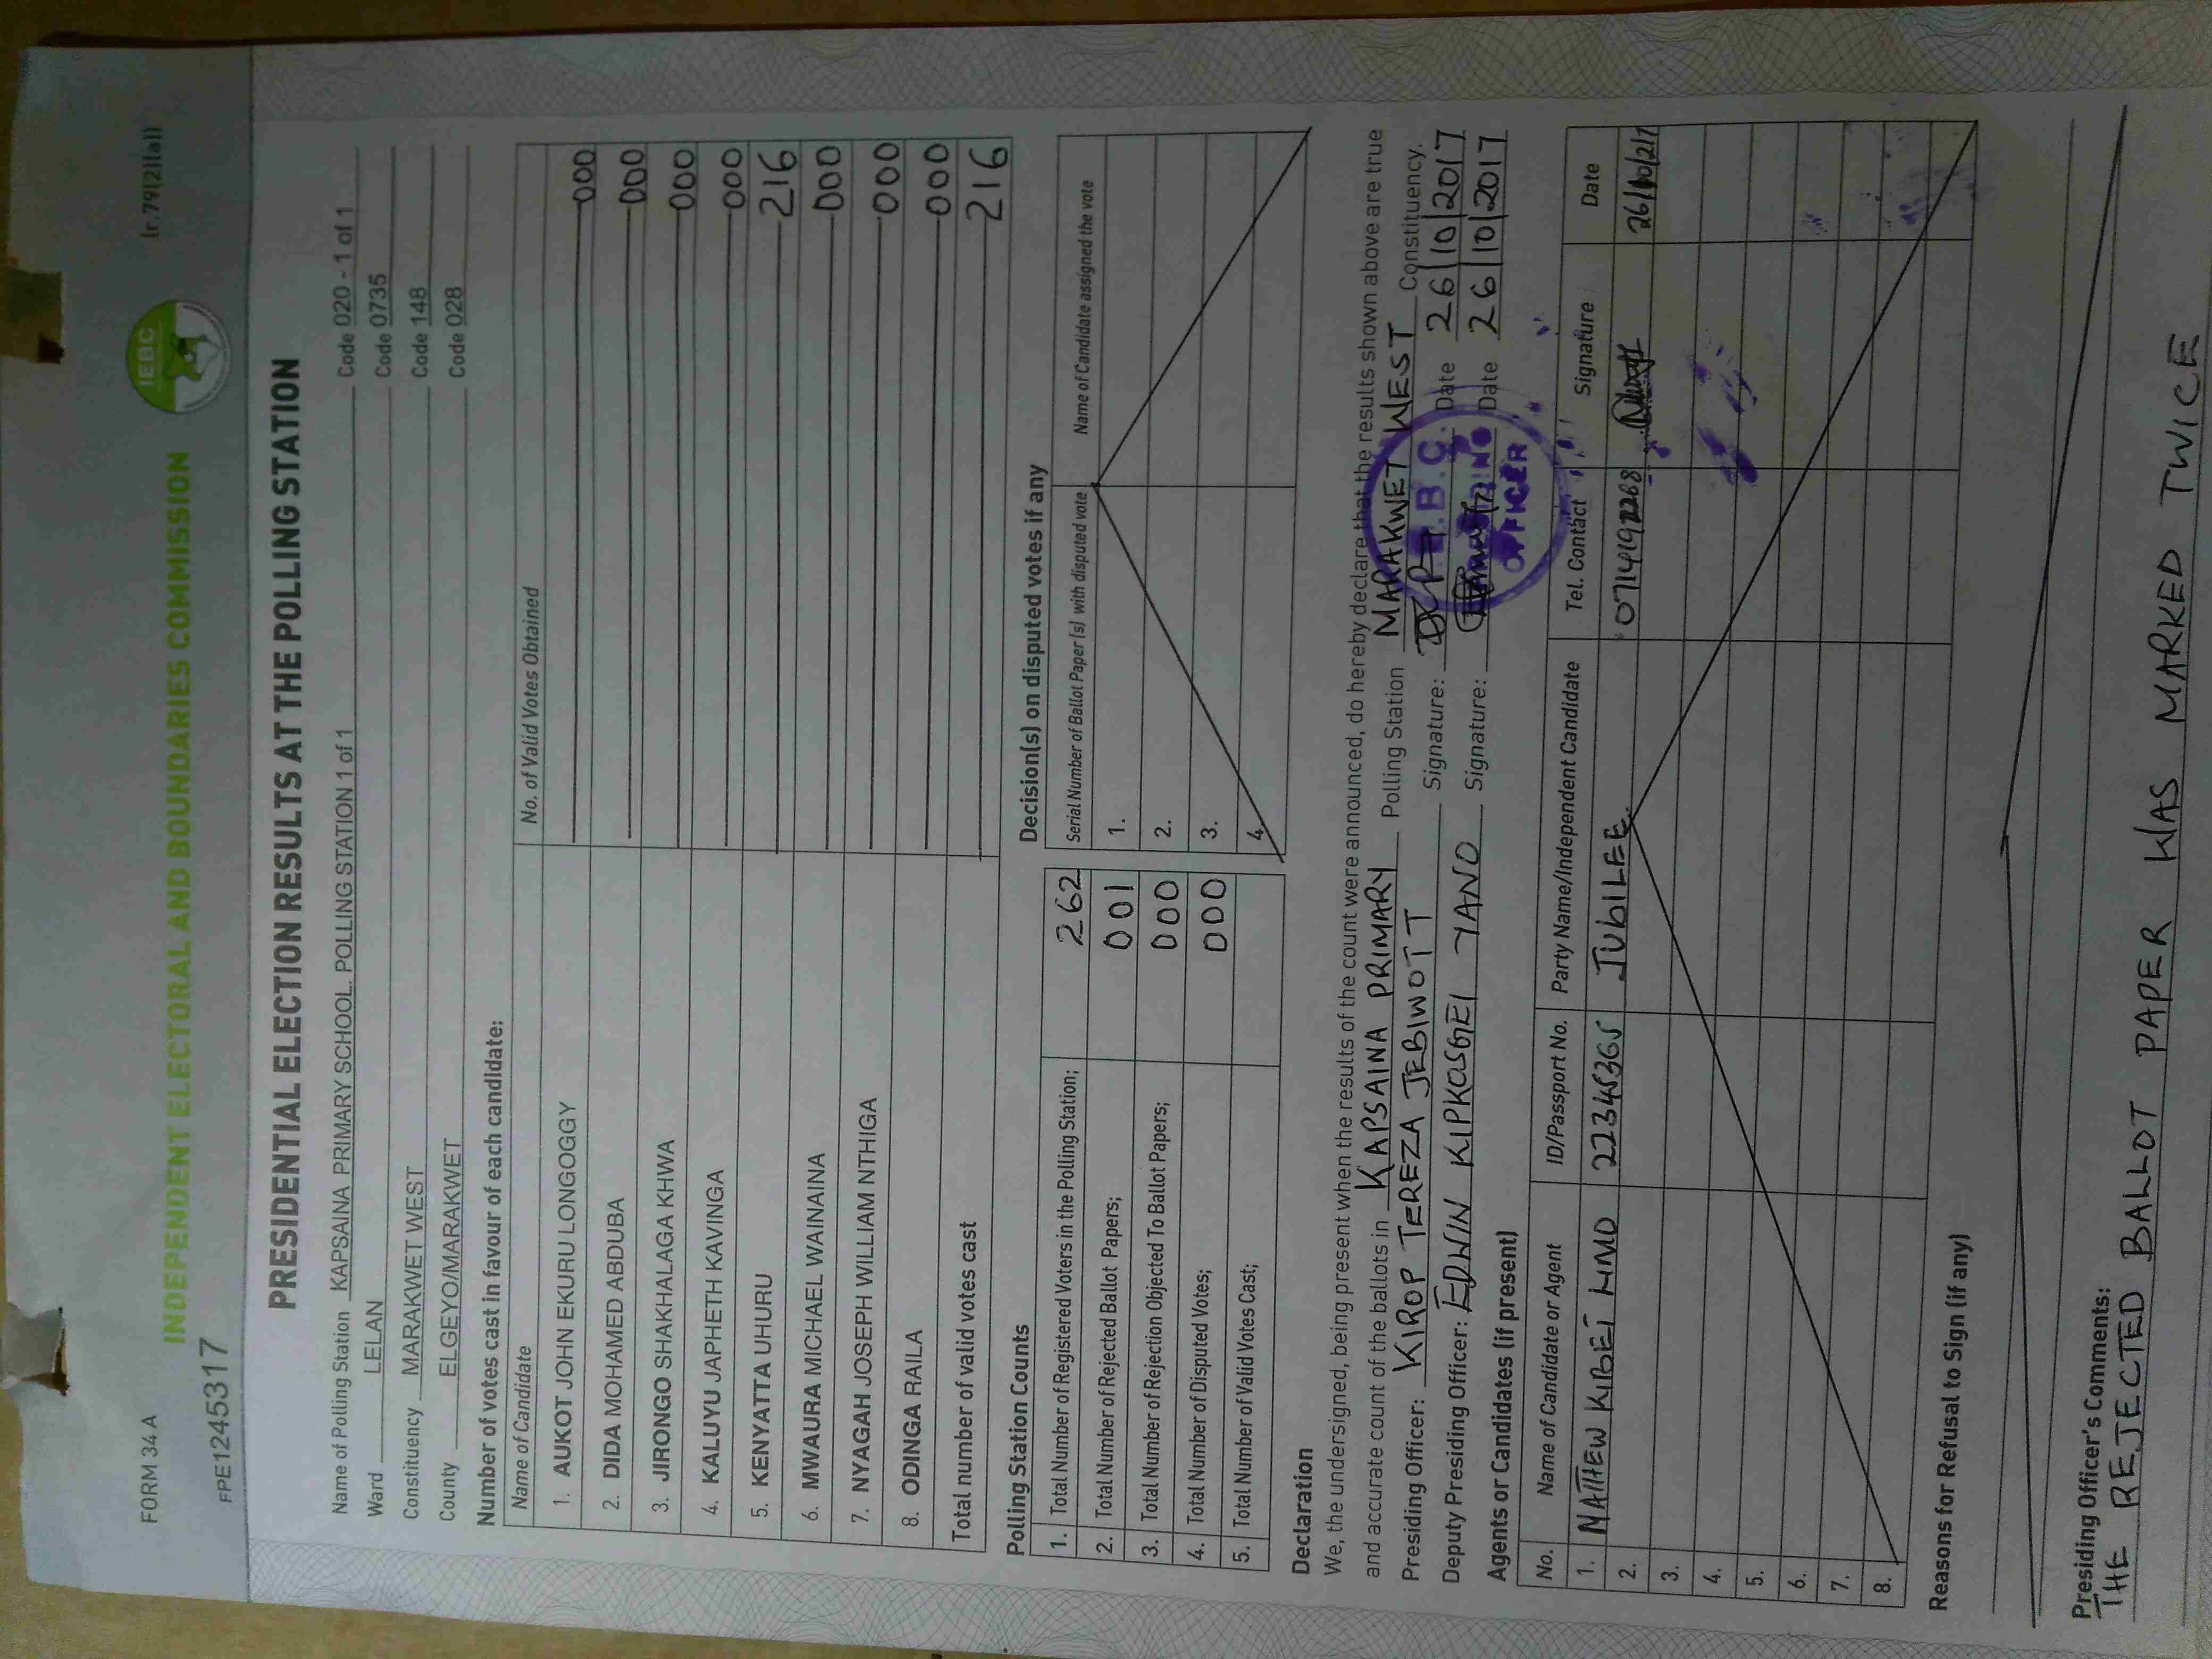 FORM 34 A
(r.79(2)(a))
IEBC
INDEPENDENT ELECTORAL AND BOUNDARIES COMMISSION
FPE1245317
PRESIDENTIAL ELECTION RESULTS AT THE POLLING STATION
Name of Polling Station KAPSAINA PRIMARY SCHOOL. POLLING STATION 1 of 1 Code 020 - 1 of 1
Ward LELAN Code 0735
Constituency MARAKWET WEST Code 148
County ELGEYO/MARAKWET Code 028
Number of votes cast in favour of each candidate:
Name of Candidate No. of Valid Votes Obtained
1. AUKOT JOHN EKURU LONGOGGY 000
2. DIDA MOHAMED ABDUBA 000
3. JIRONGO SHAKHALAGA KHWA 000
4. KALUYU JAPHETH KAVINGA 000
5. KENYATTA UHURU 216
6. MWAURA MICHAEL WAINAINA 000
7. NYAGAH JOSEPH WILLIAM NTHIGA 000
8. ODINGA RAILA 000
Total number of valid votes cast 216
Polling Station Counts
1. Total Number of Registered Voters in the Polling Station; 262
2. Total Number of Rejected Ballot Papers; 001
3. Total Number of Rejection Objected To Ballot Papers; 000
4. Total Number of Disputed Votes; 000
5. Total Number of Valid Votes Cast;
Decision(s) on disputed votes if any
Serial Number of Ballot Paper(s) with disputed vote Name of Candidate assigned the vote
1.
2.
3.
4.
Declaration
We, the undersigned, being present when the results of the count were announced, do hereby declare that the results shown above are true
and accurate count of the ballots in KAPSAINA PRIMARY Polling Station MARAKWET WEST Constituency.
Presiding Officer: KIROP TEREZA JEBIWOTT Signature: Date 26/10/2017
Deputy Presiding Officer: EDWIN KIPKOSGEI YANO Signature: Date 26/10/2017
OFFICER
Agents or Candidates (if present)
No. Name of Candidate or Agent ID/Passport No. Party Name/Independent Candidate Tel. Contact Signature Date
1. MATHEW KIBET LIMO 22345365 JUBILEE
2.
3.
4.
5.
6.
7.
8.
Reasons for Refusal to Sign (if any)
Presiding Officer's Comments:
THE REJECTED BALLOT PAPER WAS MARKED TWICE